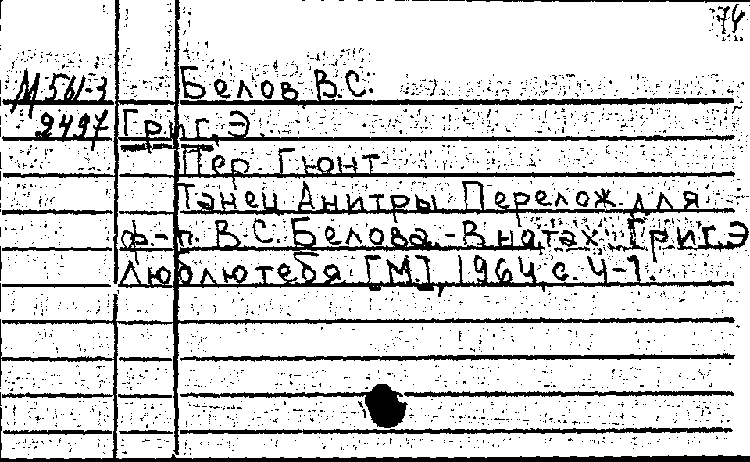 74
М 561-3 Белов, В.С.
2497 Григ, Э.
Пер Гюнт
Танец Анитры. Перелож. для
ф-п. В.С. Белова.-В нотах: Григ, Э
Люблю тебя. [М.], 1964, с. 4-7.